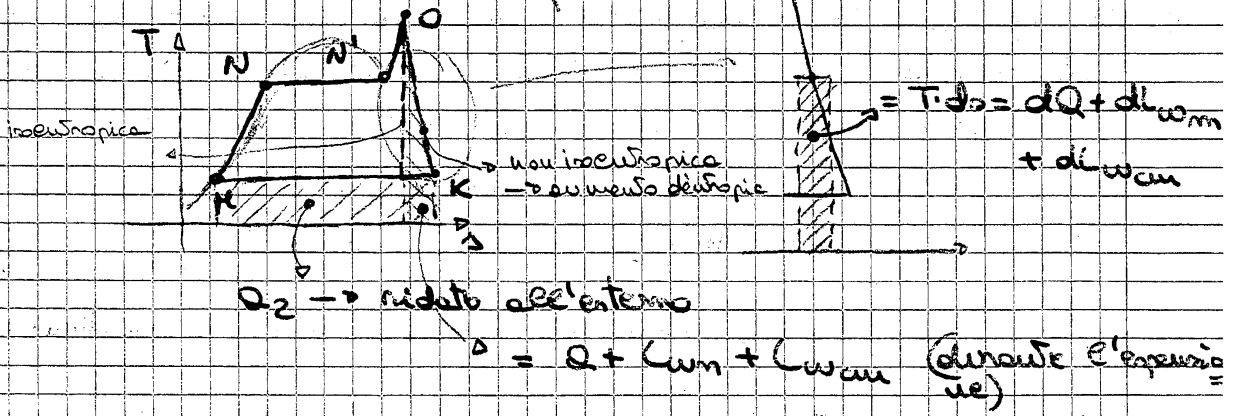 T
O
N
N'
isoentropica
non isoentropica
→ aumento d'entropia
M
K
s
= T·ds = dQ + dLwm
+ dLwcm
Q2 → ridato all'esterno
= Q + Lwm + Lwcm (durante l'espansio
ne)